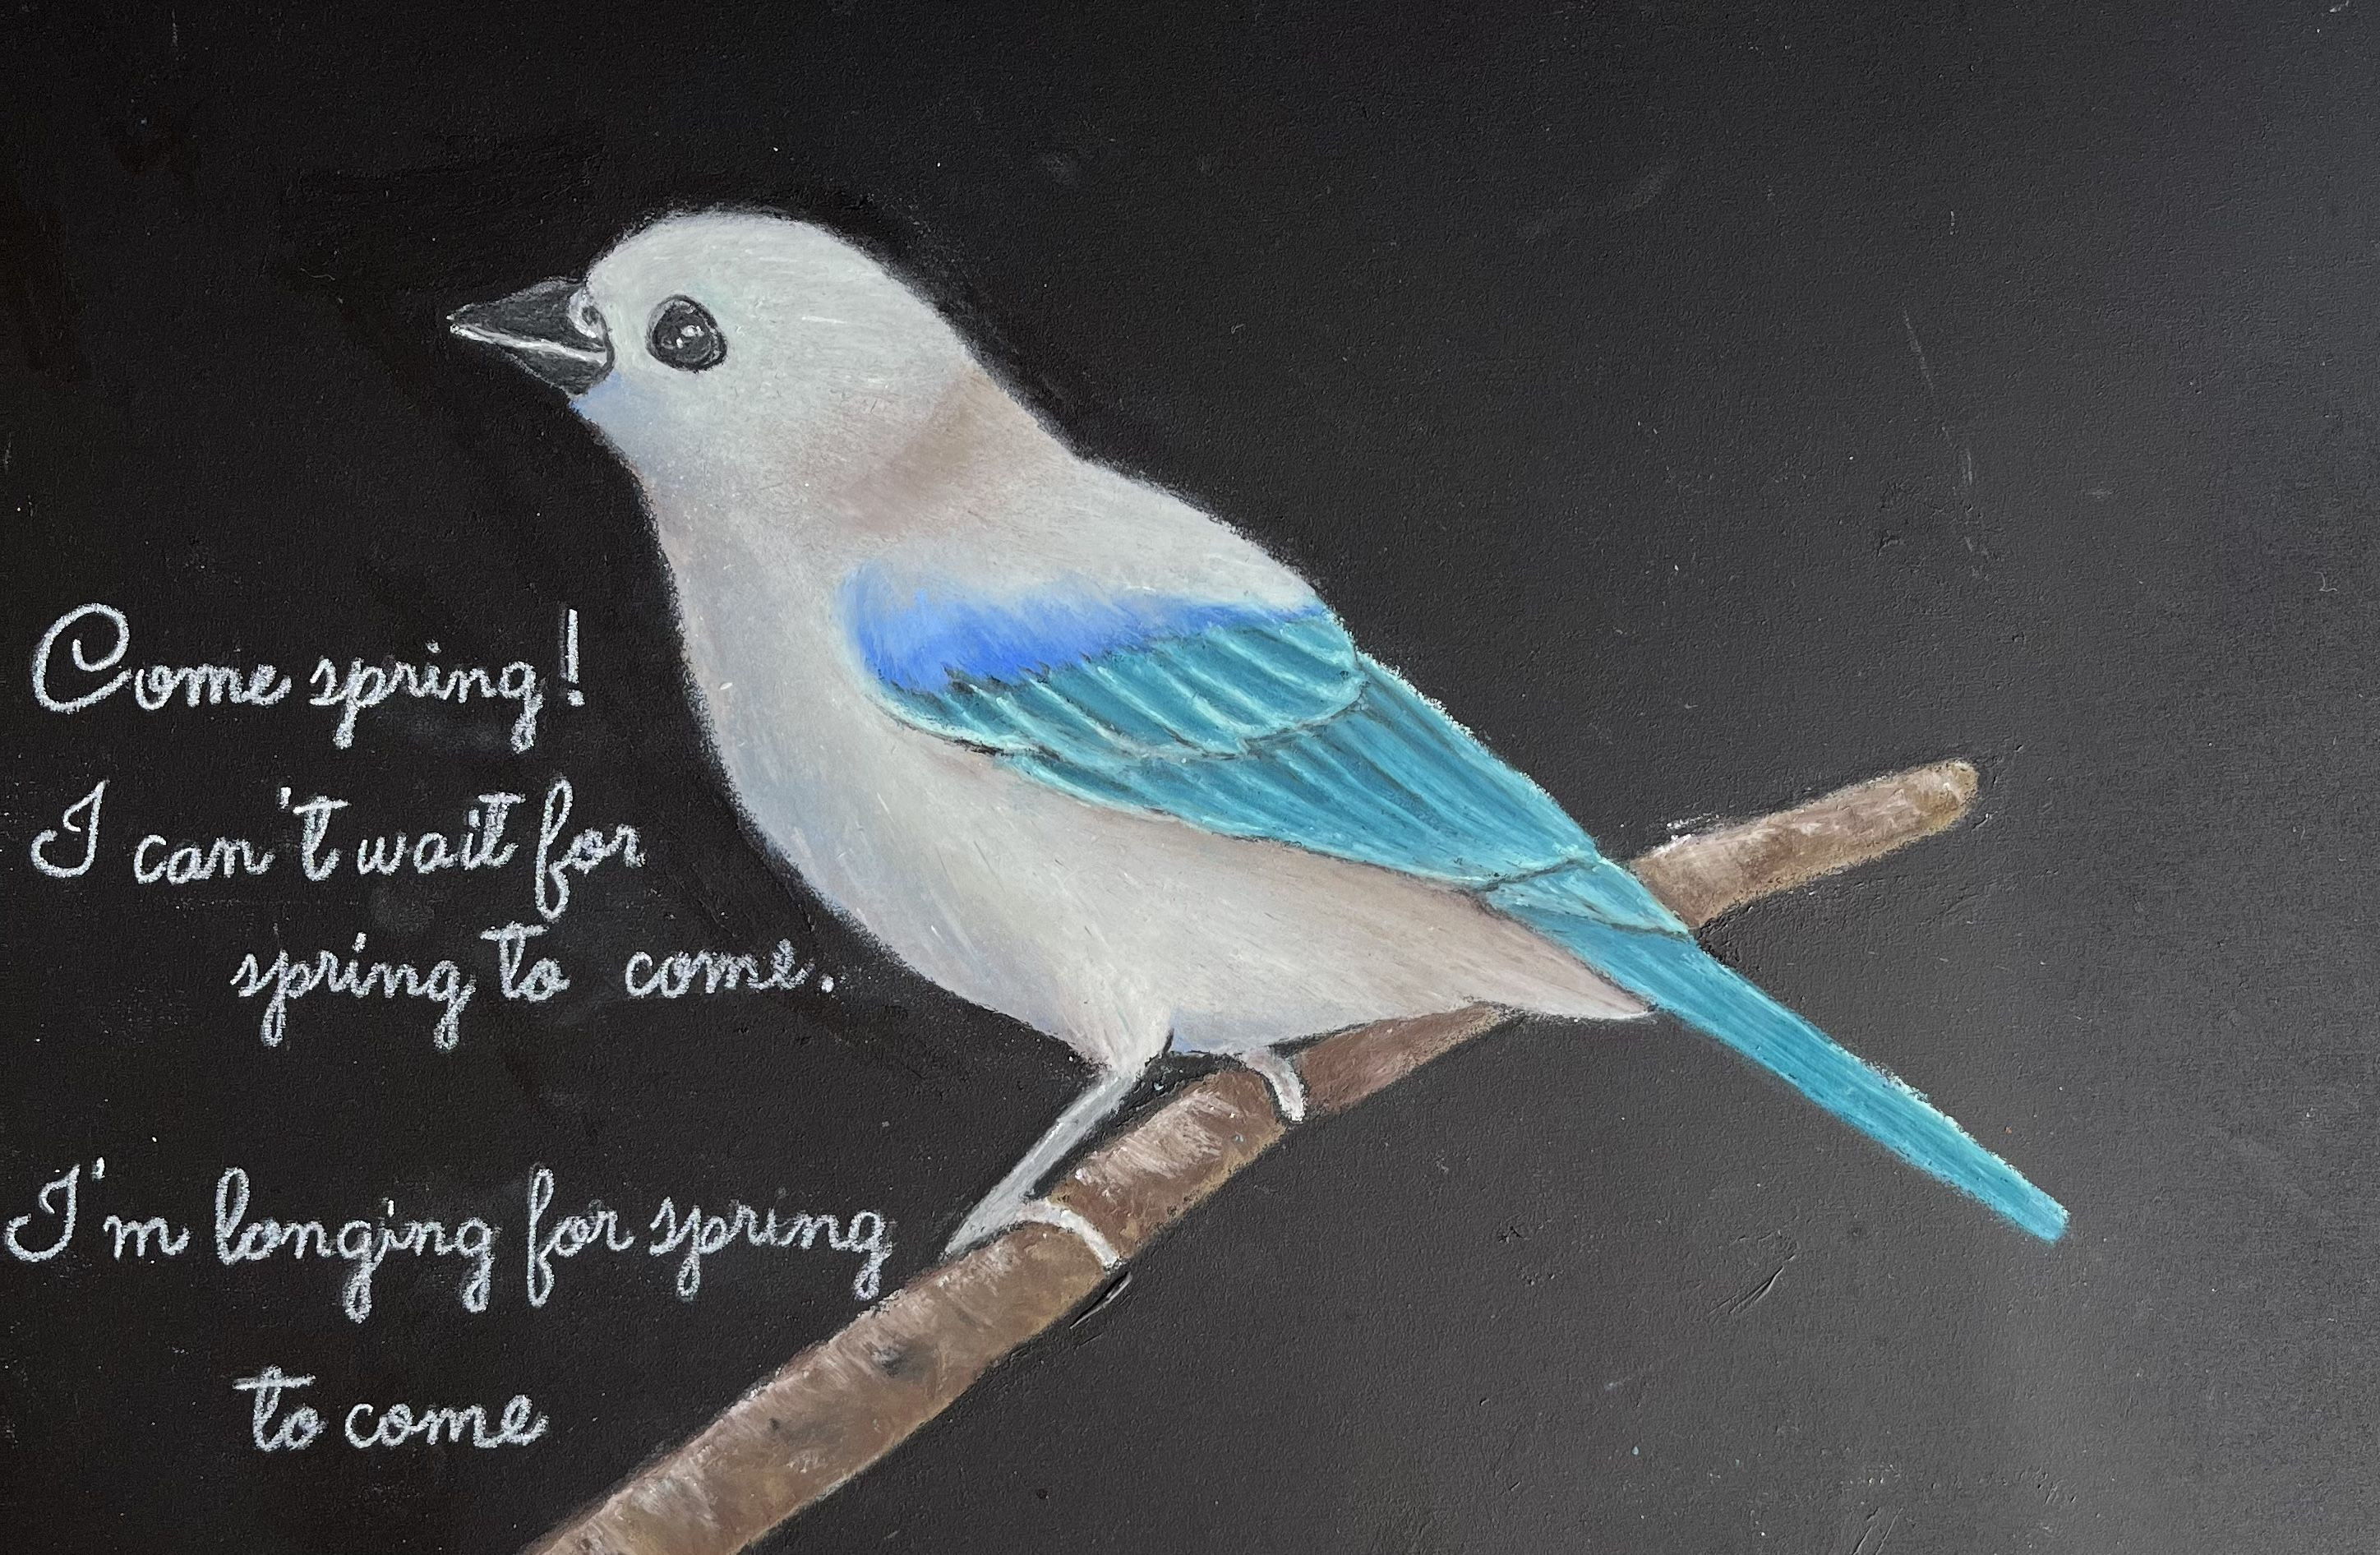 Come spring!
I can't wait for
spring to come.
I'm longing for spring
to come